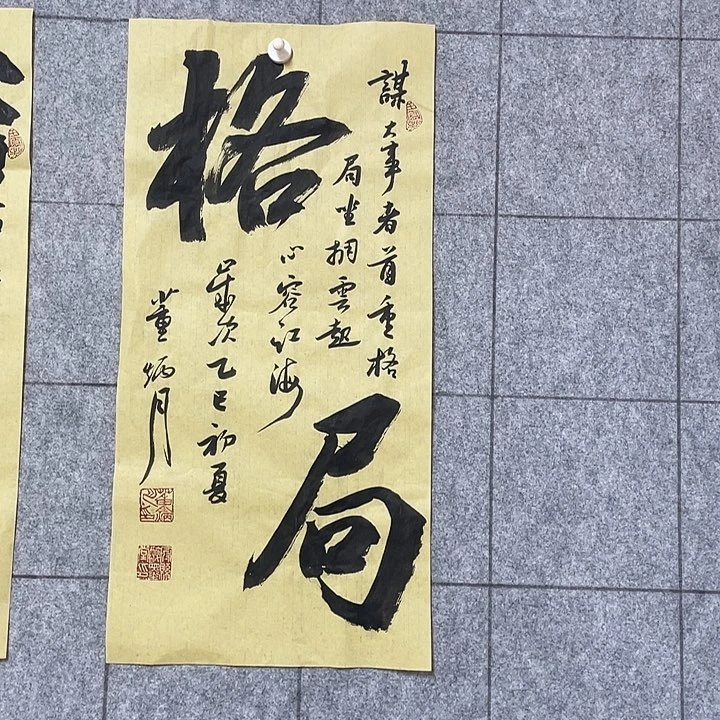 格局
謀大事者首重格
局坐拥雲起
心容江海
歲次乙巳初夏
董炳月